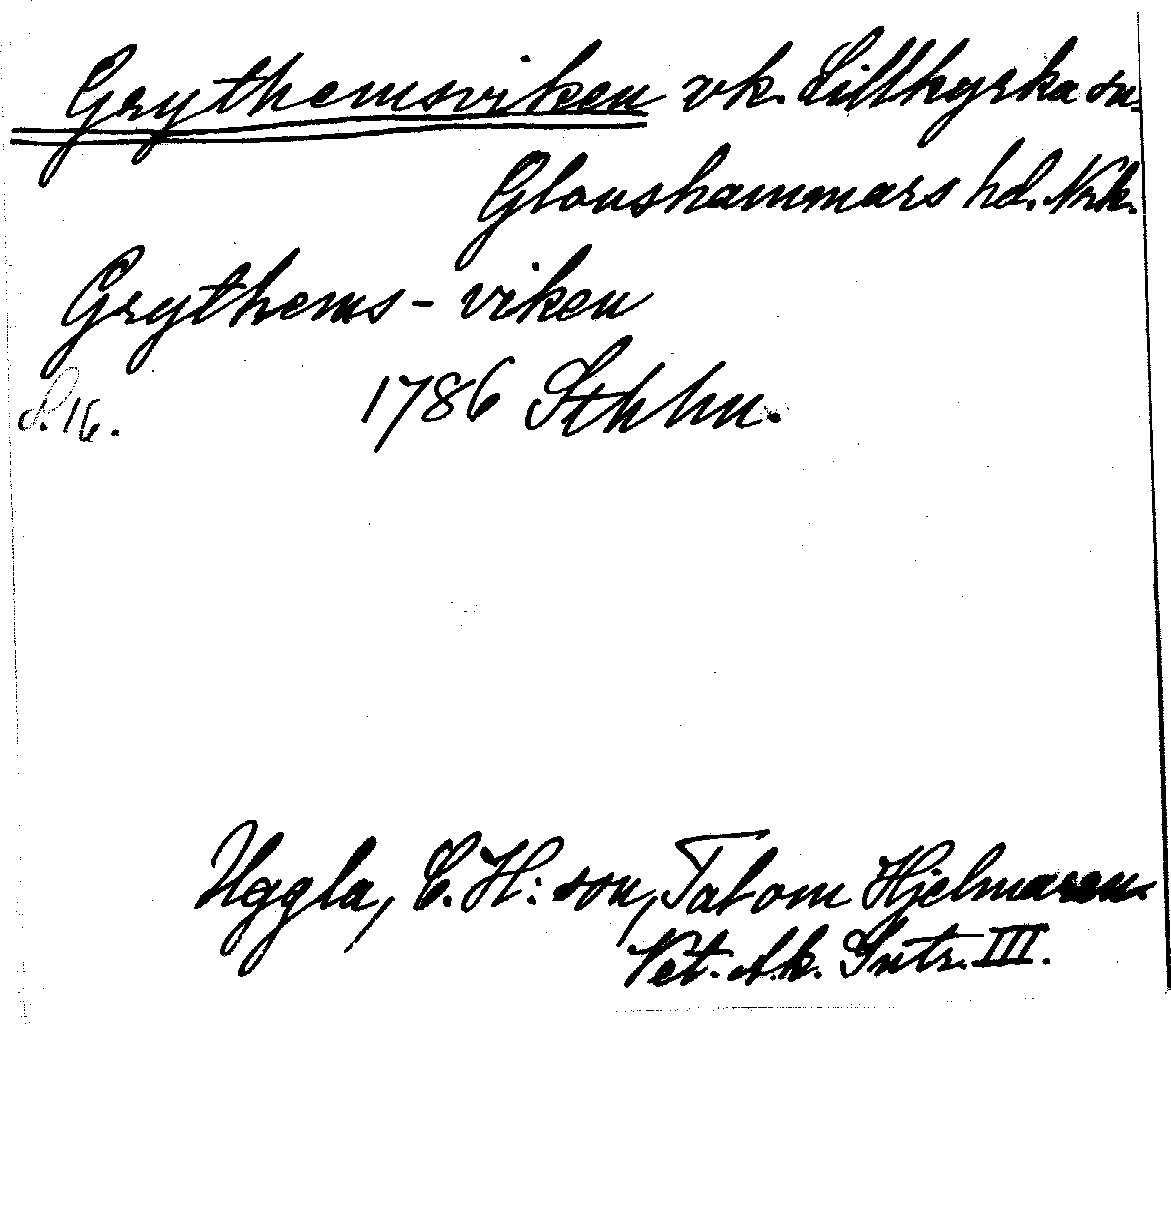 Grythemsviken vk. Lillkyrka sn.
Glanshammars hd. Nrk.
Grythems-viken
S. 16. 1786 Sthlm.
Uggla, C. H:son, Tal om Hjelmaren.
Vet. Ak. Intr. III.